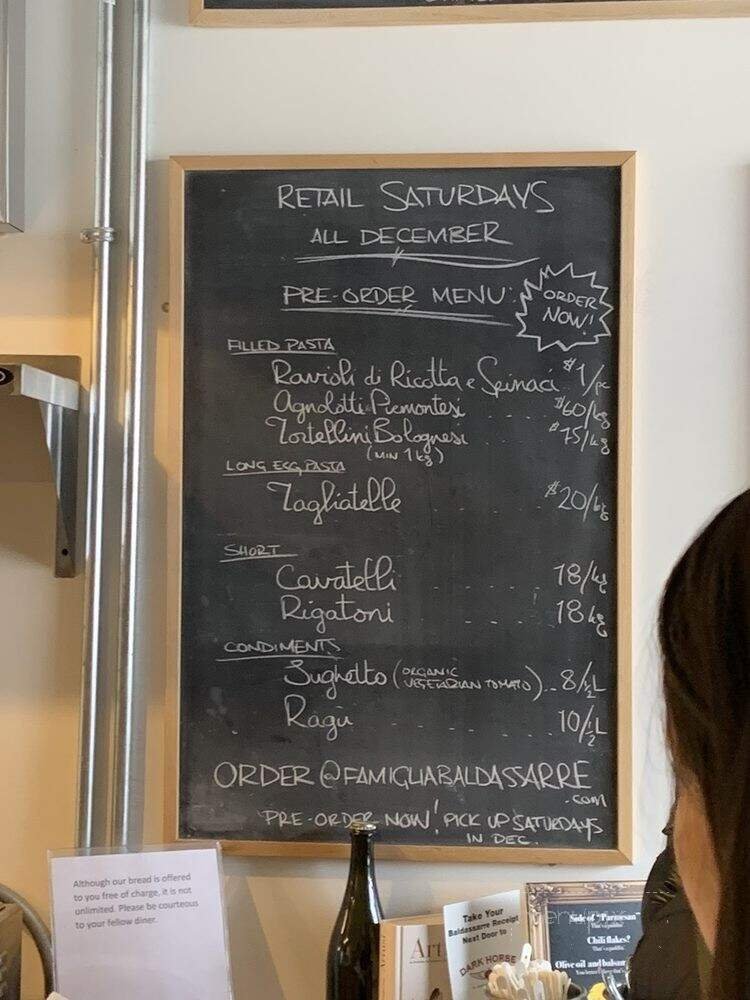 RETAIL SATURDAYS
ALL DECEMBER
PRE-ORDER MENU:
ORDER
NOW!
FILLED PASTA
Ravioli di Ricotta e Spinaci $1/pc
Agnolotti Piemontesi $60/kg
Tortellini Bolognesi $75/kg
(MIN 1kg)
LONG EGG PASTA
Tagliatelle $20/kg
SHORT
Cavatelli 18/kg
Rigatoni 18 kg
CONDIMENTS
Sughetto (ORGANIC VEGETARIAN TOMATO) .. 8/½L
Ragù 10/½L
ORDER@FAMIGLIABALDASSARRE
.com
PRE-ORDER NOW! PICK UP SATURDAYS
IN DEC.
Although our bread is offered
to you free of charge, it is not
unlimited. Please be courteous
to your fellow diner.
Art
Take Your
Baldassarre Receipt
Next Door to
DARK HORSE
Side of "Parmesan"
Chili flakes?
Olive oil and balsam